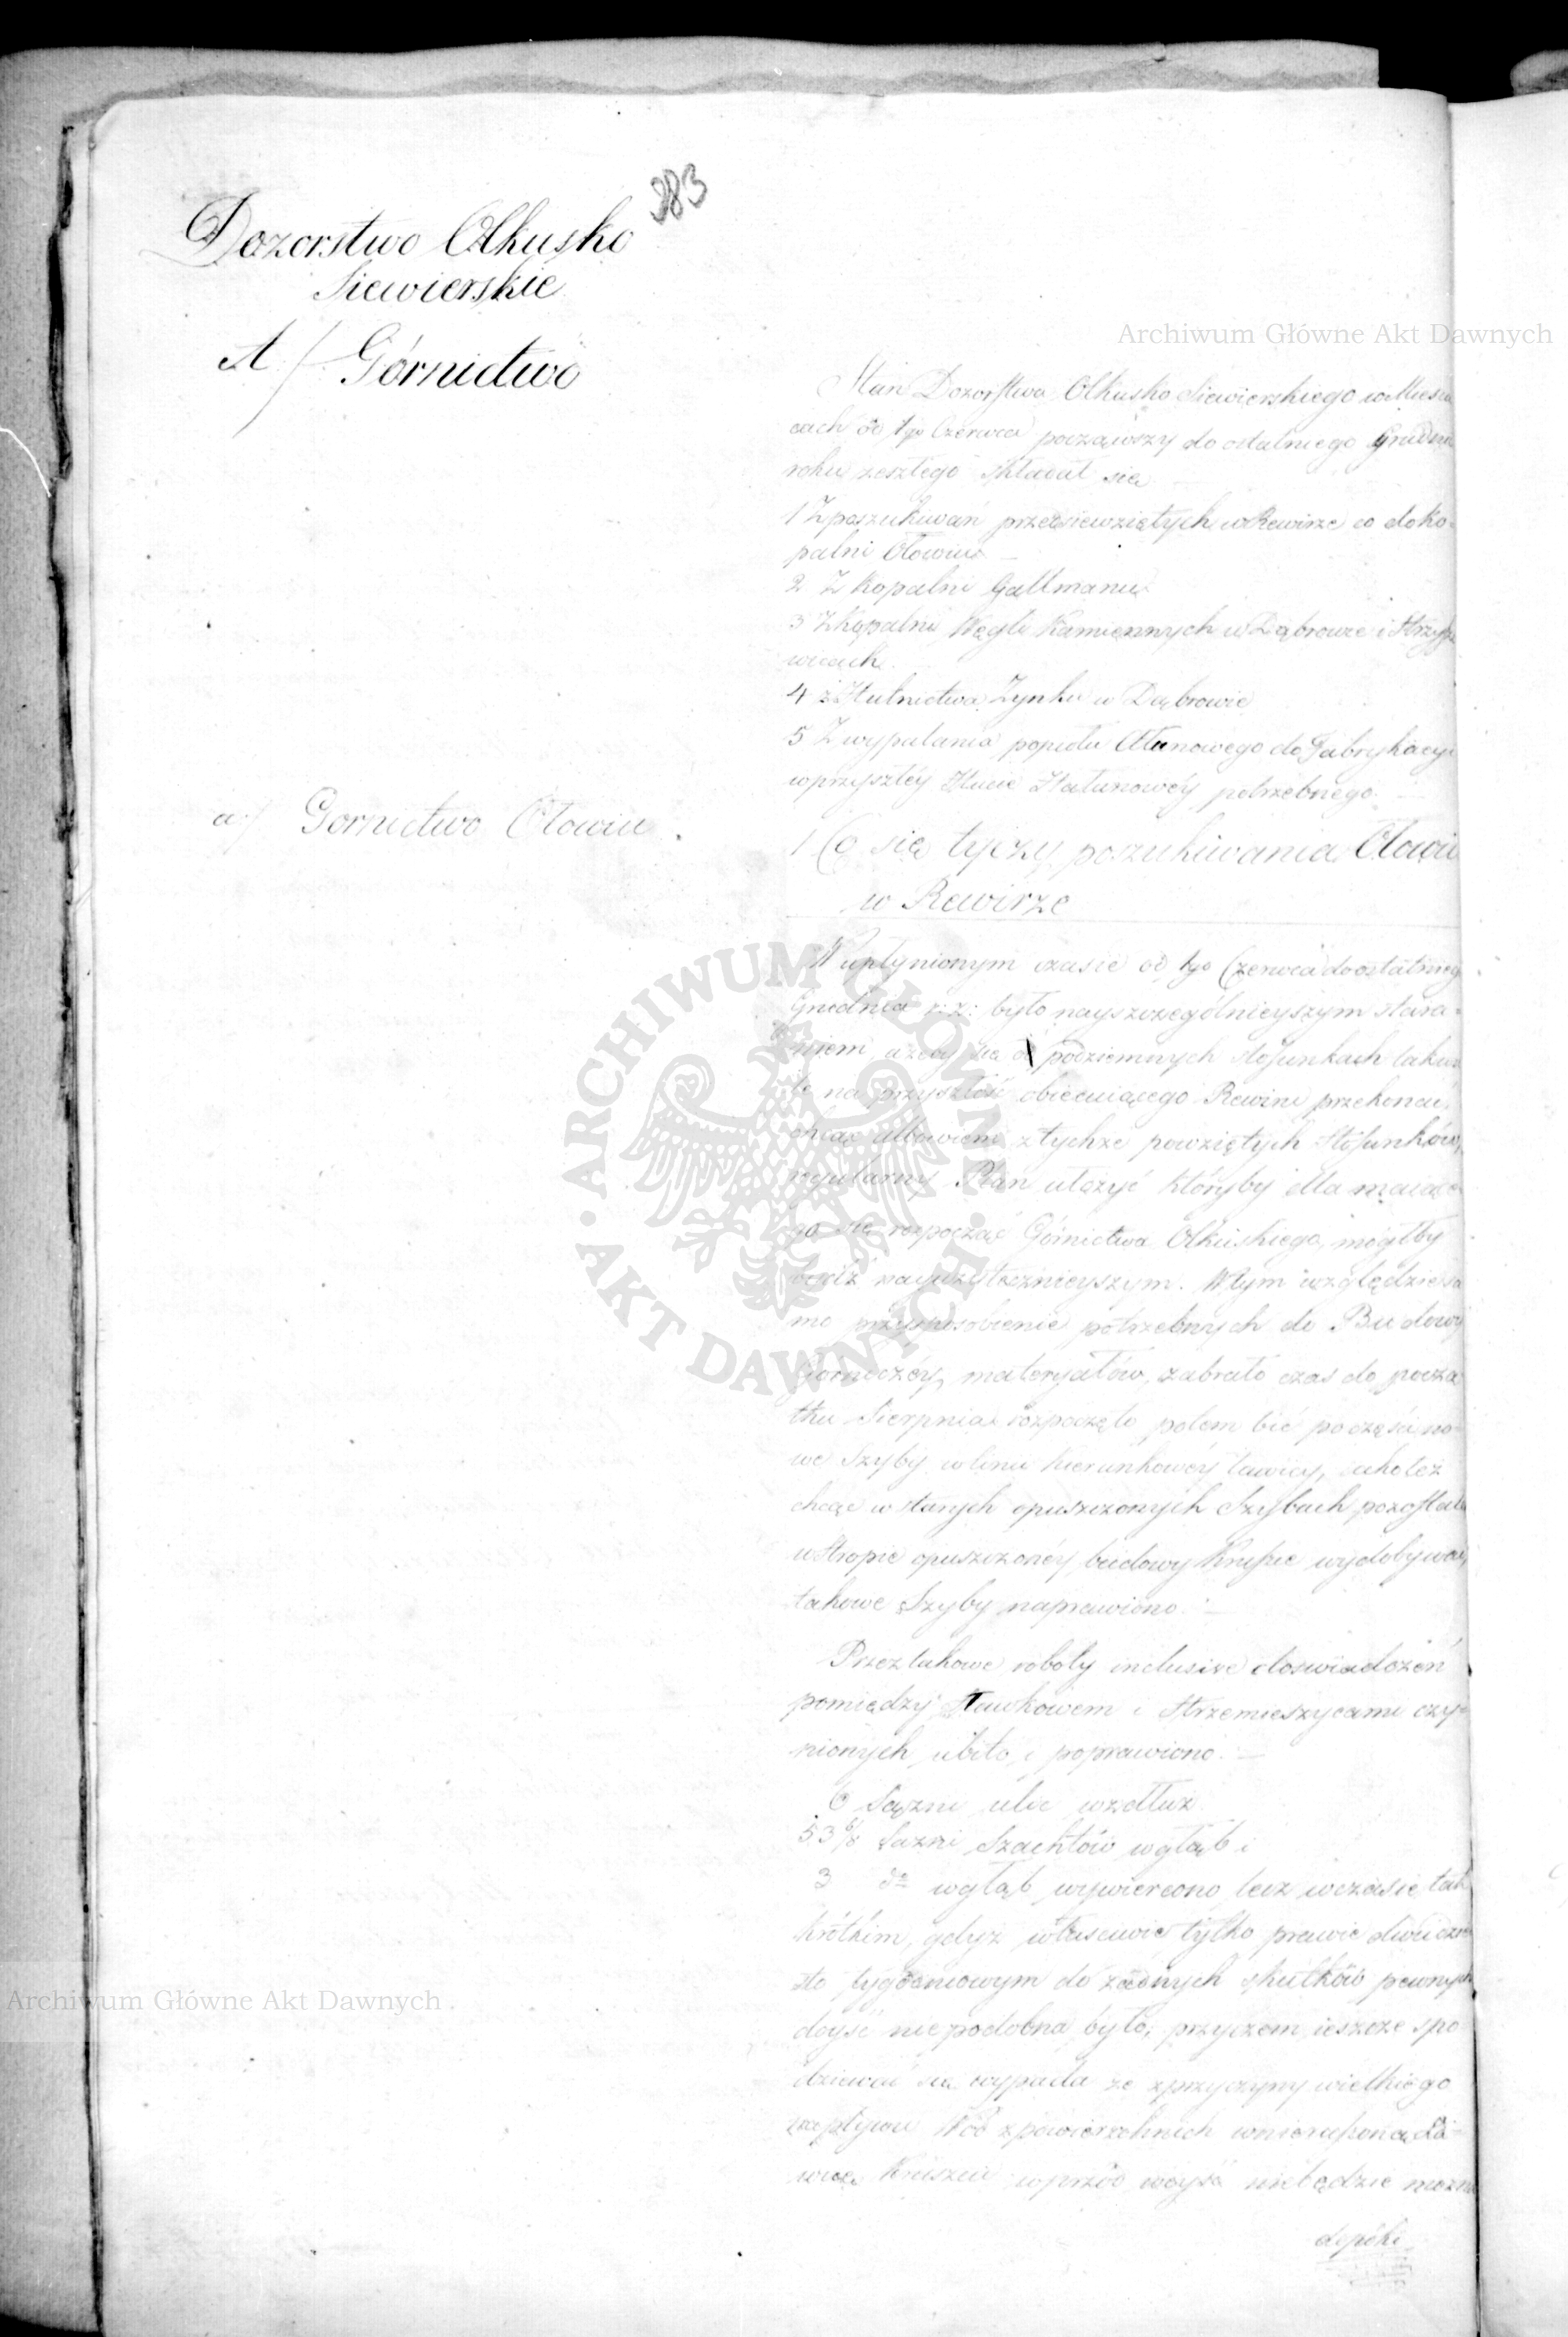 383
Dozorstwo Olkusko
Siewierskie
A/ Górnictwo
Archiwum Główne Akt Dawnych
Stan Dozorstwa Olkusko Siewierskiego w Miesią
cach od 1go Czerwca począwszy do ostatniego Grudnia
roku zeszłego składał się
1 Z poszukiwań przedsiewziętych w Rewirze co do Ko-
palni Ołowiu
2 Z Kopalni Gallmanu
3 Z Kopalni Węgli Kamiennych w Dąbrowie i Strzyżo
wicach
4 z Hutnictwa Zynku w Dąbrowie
5 Z wypalania popiołu Ałunowego do Fabrykacyi
w przyszłéy Hucie Hałunowéy potrzebnego
a/ Gornictwo Ołowiu.
1 Co się tyczy poszukiwania Ołowiu
w Rewirze
W upłynionym czasie od 1go Czerwca do ostatniego
Grudnia r: z: było nayszczególnieyszym stara-
niem, ażeby się o podziemnych stosunkach tak
na przyszłość obiecuiącego Rewiru przekonać,
chcąc albowiem z tychże powziętych Stosunków,
regularny Plan ułożyć któryby dla maiące
go się rozpocząć Górnictwa Olkuskiego, mógłby
bydź nayużytecznieyszym. W tym względzie sa
mo przysposobienie potrzebnych do Budowy
Gorniczéy materyałów, zabrało czas do począ
tku Sierpnia rozpoczęto potem bić po części no-
we Szyby w linii kierunkowéy ławicy, iako też
chcąc w starych opuszczonych Szybach pozostałe
w Stropie opuszczonéy budowy Kruszce wydobywać,
takowe Szyby naprawiono.
Przez takowe roboty inclusive doświadczeń
pomiędzy Sławkowem i Strzemieszycami czy-
nionych ubito i poprawiono.
6 Sążni ulic wzdłuż
53 6/8 Sążni Szachtów wgłąb i
3 do wgłąb wywiercono lecz w czasie tak
krótkim, gdyż właściwie tylko prawie dwudzie
sto tygodniowym do żadnych skutków pewnych
doyść niepodobna było, przyczem ieszcze spo
dziewać się wypada że z przyczyny wielkiego
wpływu Wód z powierzchnich w nieruszoną Ła-
wicę Kruszcu wprzód weyść niebędzie można
dopóki
Archiwum Główne Akt Dawnych
ARCHIWUM GŁÓWNE
· AKT DAWNYCH ·